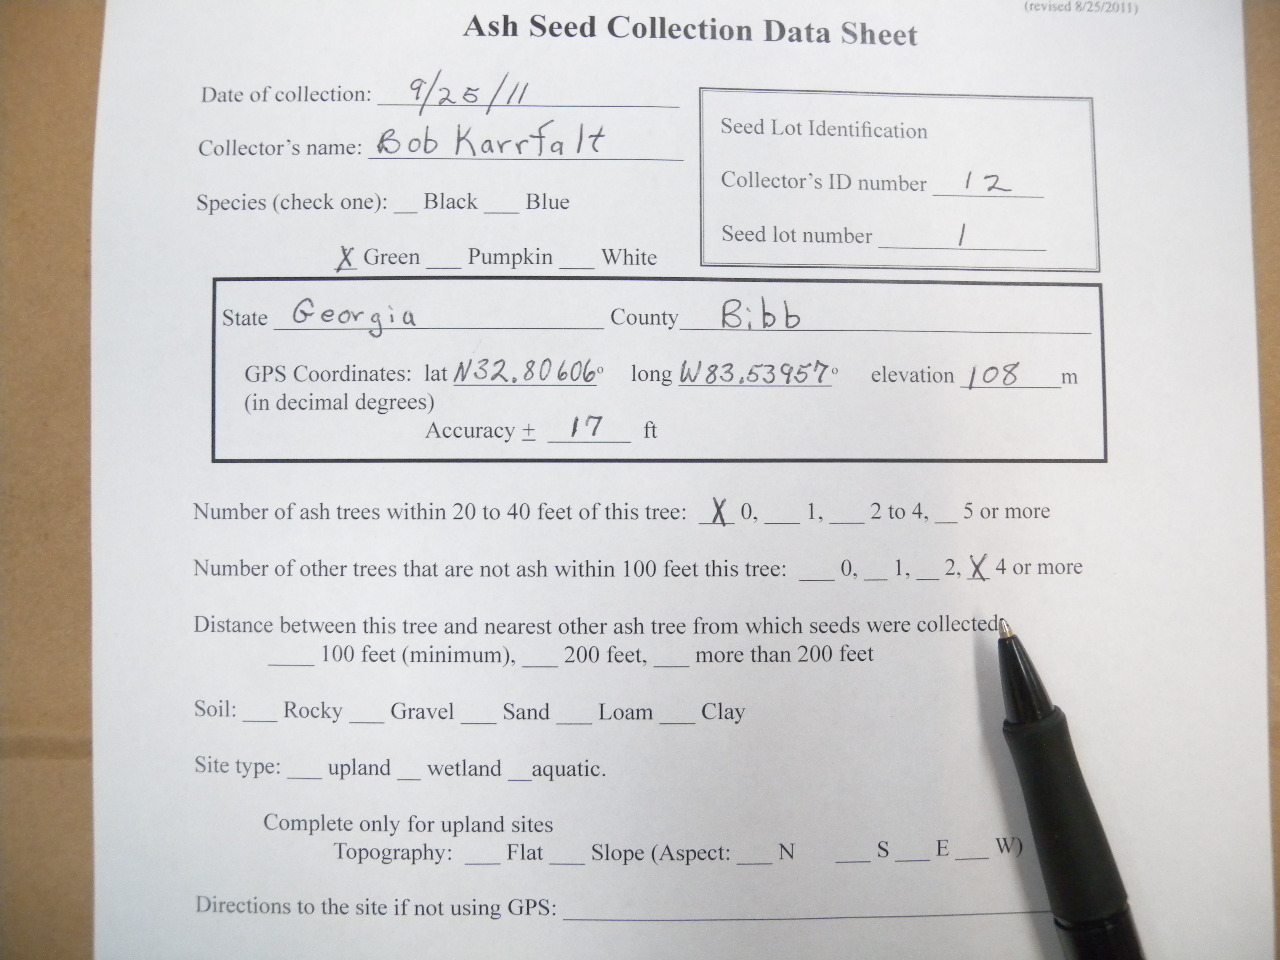 (revised 8/25/2011)
Ash Seed Collection Data Sheet
Date of collection: 9/25/11
Collector's name: Bob Karrfalt
Species (check one): __ Black ___ Blue
X Green ___ Pumpkin ___ White
Seed Lot Identification
Collector's ID number 12
Seed lot number 1
State Georgia County Bibb
GPS Coordinates: lat N32.80606° long W83.53957° elevation 108 m
(in decimal degrees)
Accuracy ± 17 ft
Number of ash trees within 20 to 40 feet of this tree: X 0, ___ 1, ___ 2 to 4, __ 5 or more
Number of other trees that are not ash within 100 feet this tree: ___ 0, __ 1, __ 2, X 4 or more
Distance between this tree and nearest other ash tree from which seeds were collected
____ 100 feet (minimum), ___ 200 feet, ___ more than 200 feet
Soil: ___ Rocky ___ Gravel ___ Sand ___ Loam ___ Clay
Site type: ___ upland __ wetland __aquatic.
Complete only for upland sites
Topography: ___ Flat ___ Slope (Aspect: ___ N ___ S ___ E ___ W)
Directions to the site if not using GPS: